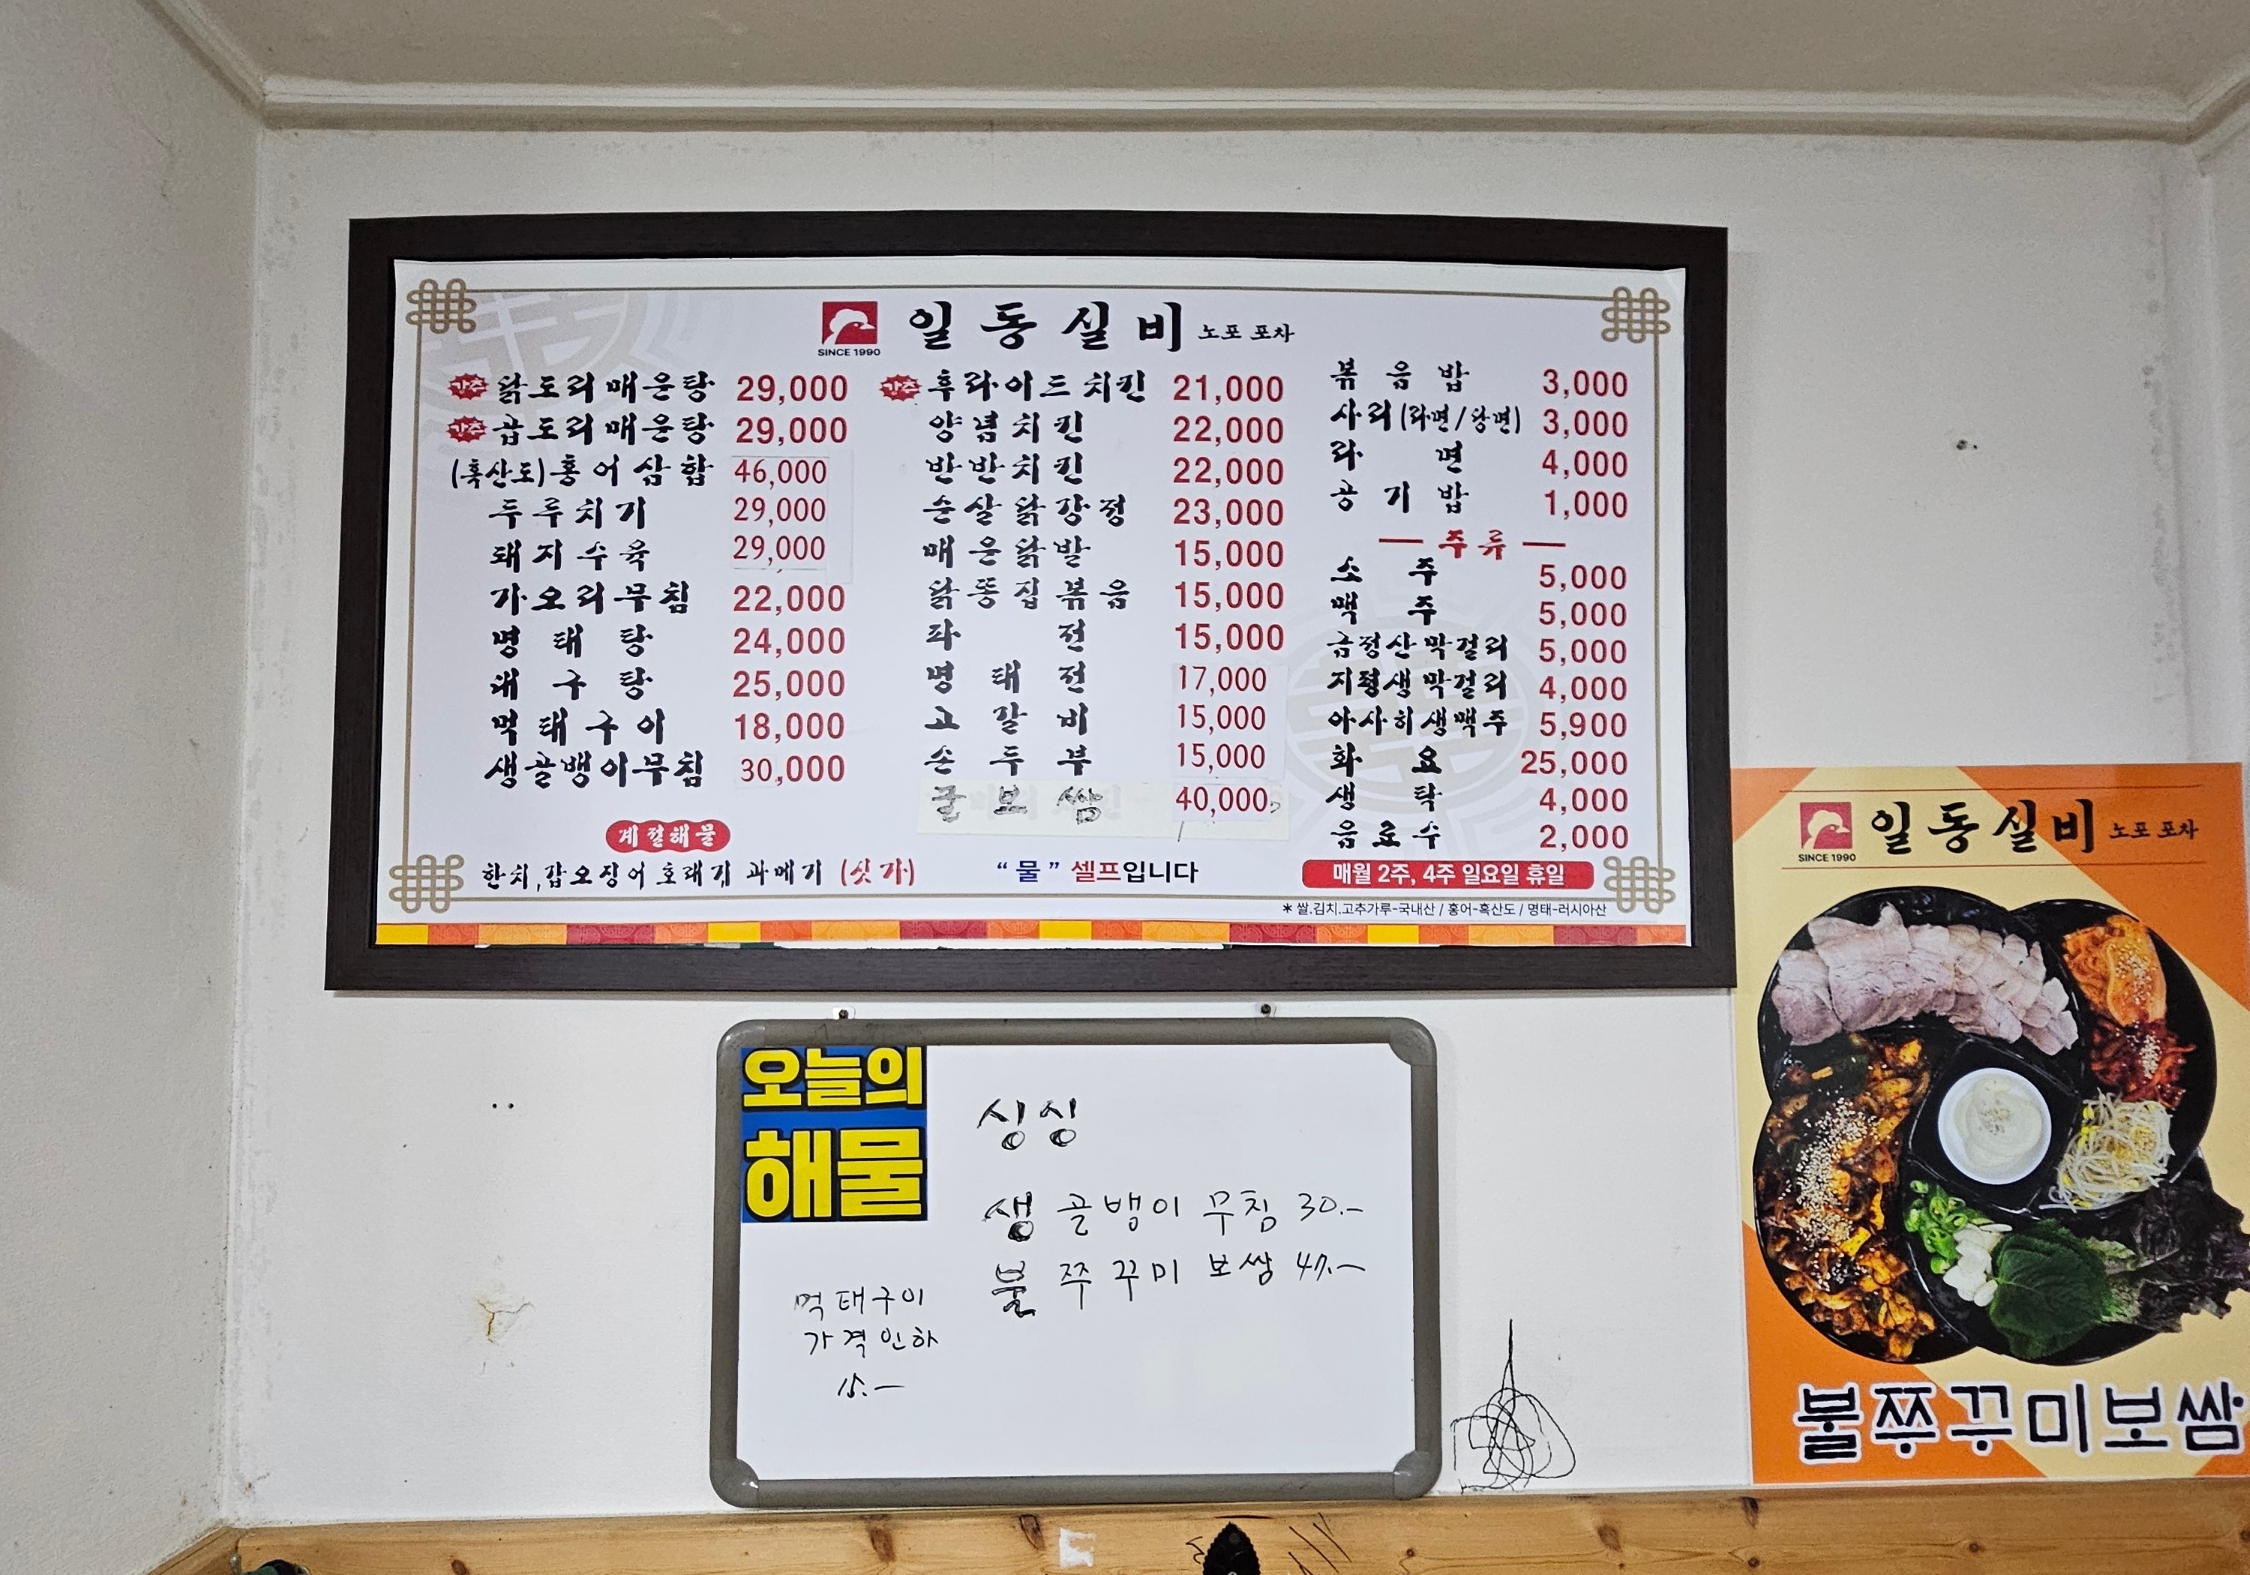 일동실비 노포 포차
SINCE 1990
강추 닭도리매운탕 29,000
강추 곱도리매운탕 29,000
(흑산도)홍어삼합 46,000
두루치기 29,000
돼지수육 29,000
가오리무침 22,000
명태탕 24,000
대구탕 25,000
먹태구이 18,000
생골뱅이무침 30,000
계절해물
한치,갑오징어 호래기 과메기 (싯가)
강추 후라이드치킨 21,000
양념치킨 22,000
반반치킨 22,000
순살닭강정 23,000
매운닭발 15,000
닭똥집볶음 15,000
파전 15,000
명태전 17,000
고갈비 15,000
손두부 15,000
굴보쌈 40,000
“물” 셀프입니다
볶음밥 3,000
사리(라면/당면) 3,000
라면 4,000
공기밥 1,000
주류
소주 5,000
맥주 5,000
금정산막걸리 5,000
지평생막걸리 4,000
아사히생맥주 5,900
화요 25,000
생탁 4,000
음료수 2,000
매월 2주, 4주 일요일 휴일
* 쌀.김치.고추가루-국내산 / 홍어-흑산도 / 명태-러시아산
오늘의
해물
싱싱
생 골뱅이 무침 30.-
불 쭈꾸미 보쌈 47.-
먹태구이
가격인하
15.-
일동실비 노포 포차
SINCE 1990
불쭈꾸미보쌈